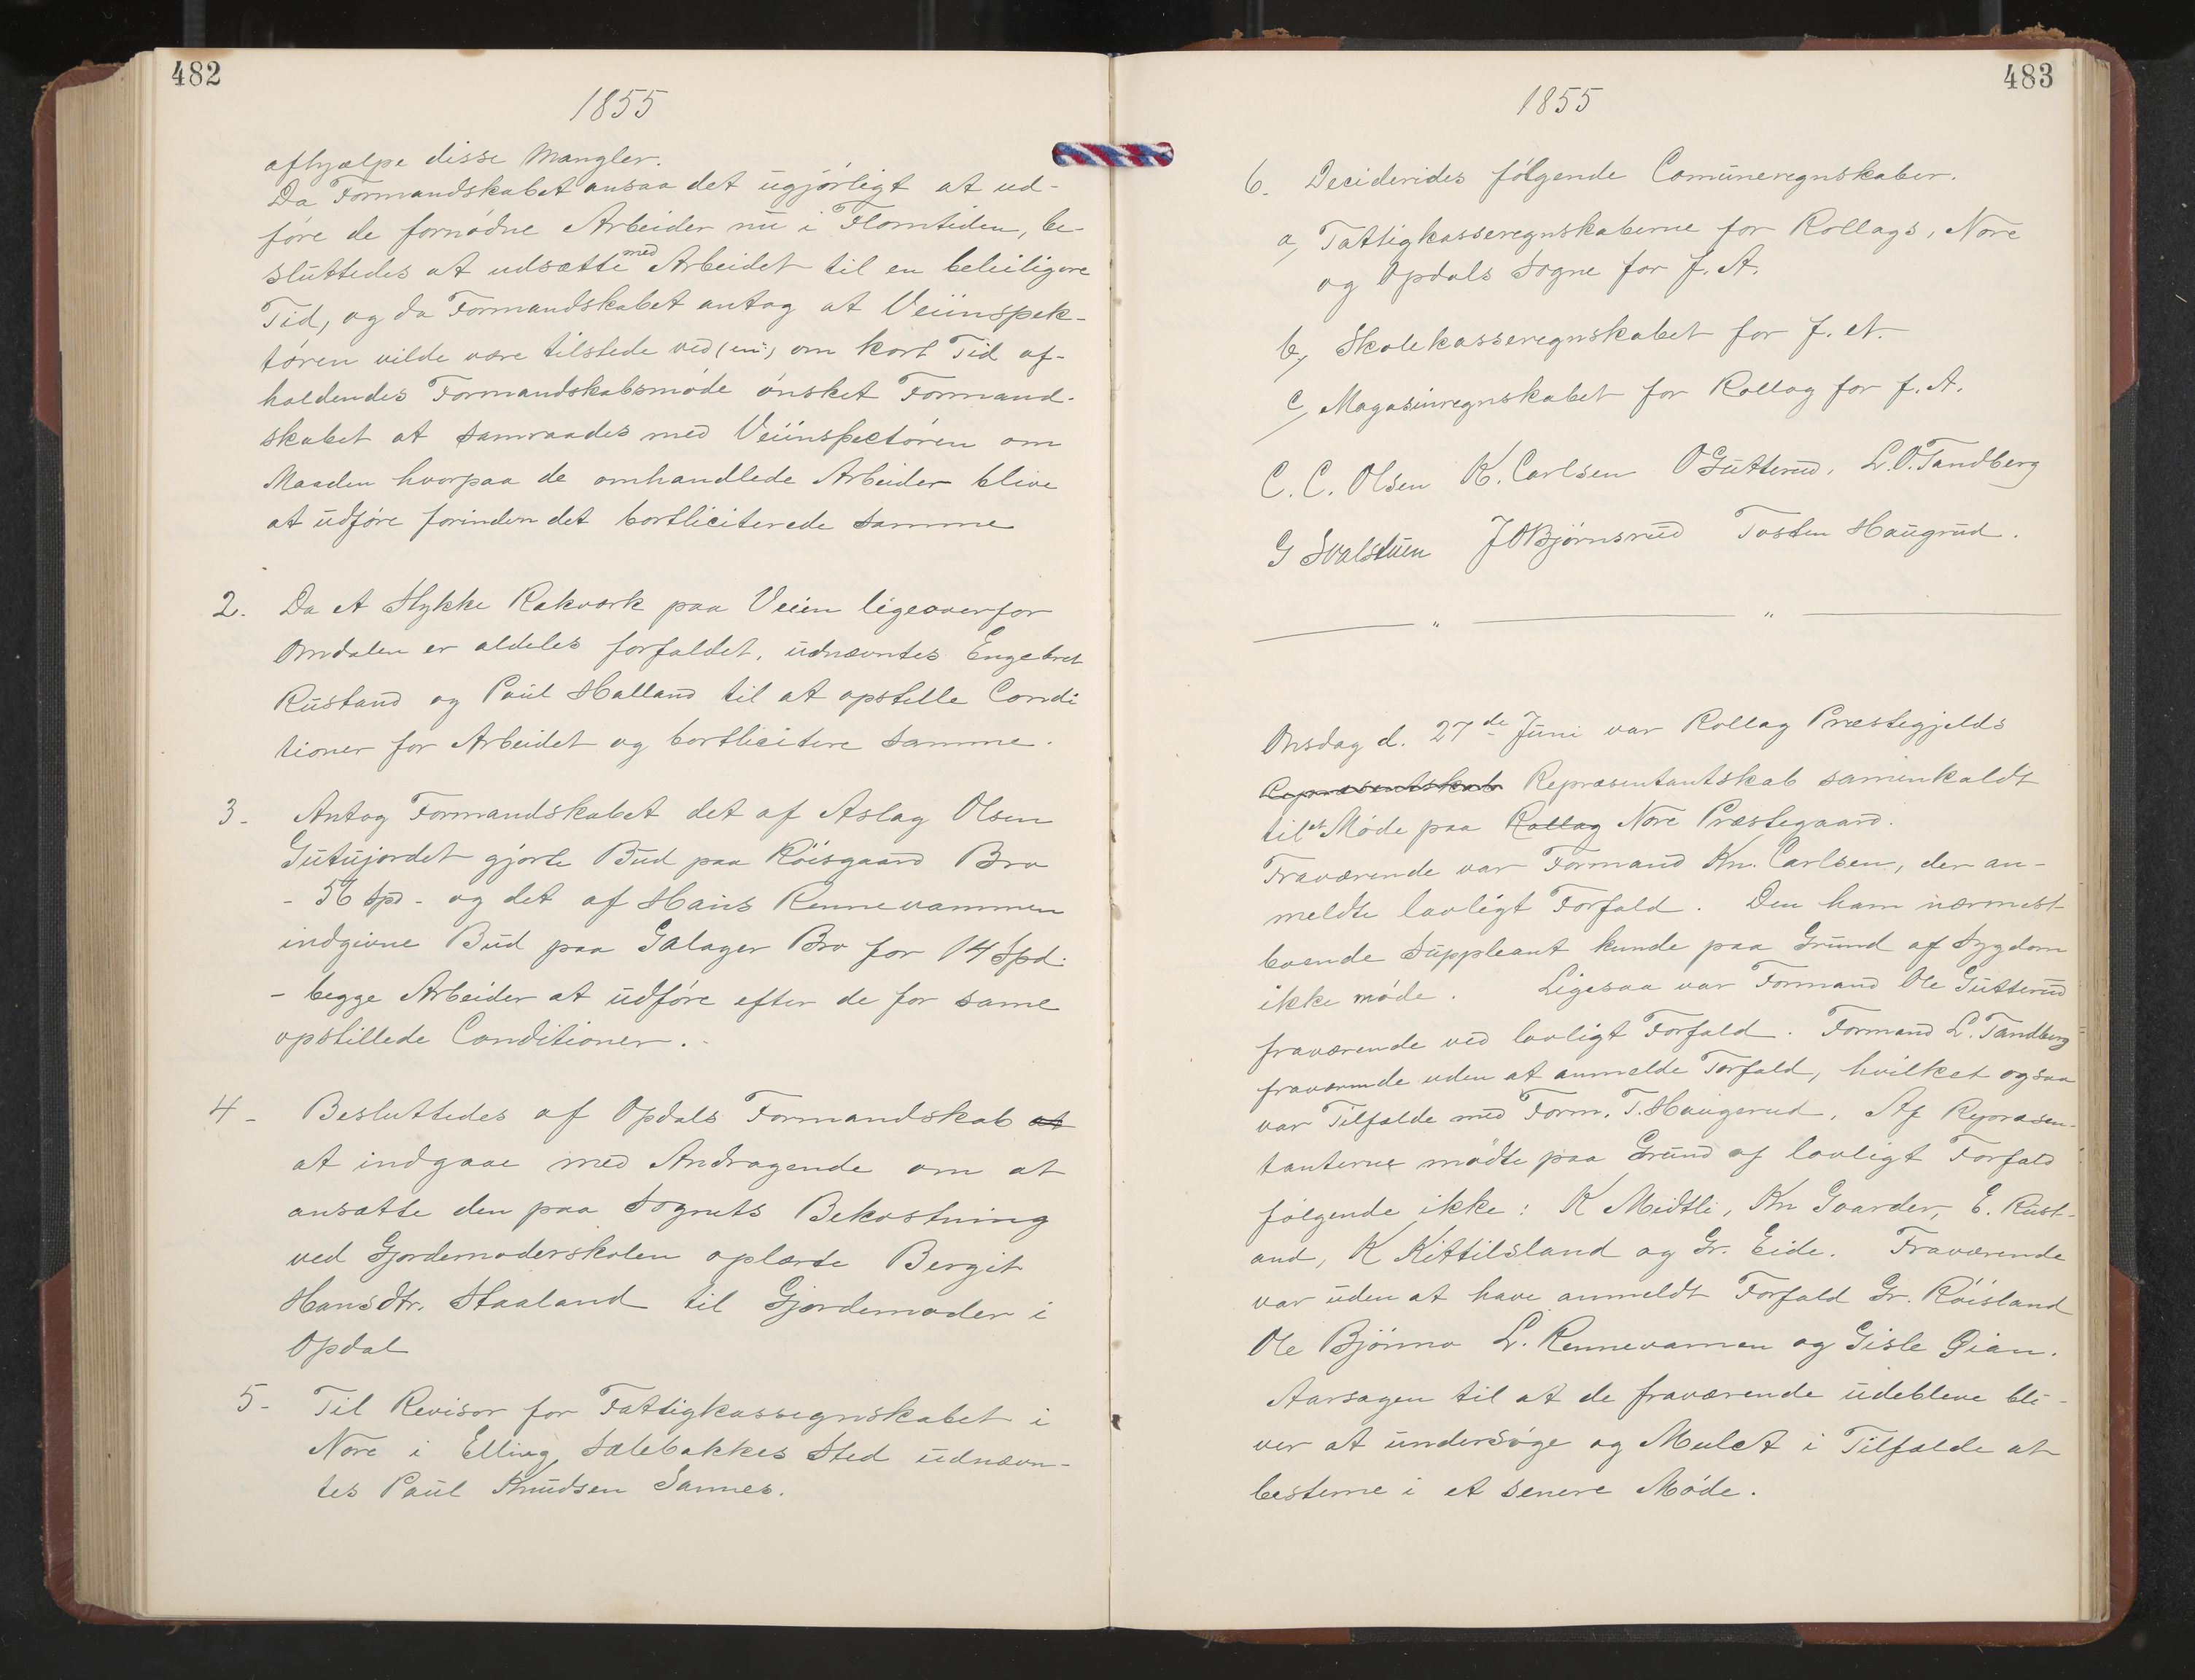 482
1855
afhjælpe disse Mangler.
Da Formandskabet ansaa det ugjörligt at ud-
före de fornødne Arbeider nu i Flomtiden, be-
sluttedes at udsætte med Arbeidet til en beleiligere
Tid, og da Formandskabet antog at Veiinspek-
tören vilde være tilstede ved (en:) om kort Tid af-
holdendes Formandskabsmöde önsket Formand-
skabet at samraades med Veiinspectören om
Maaden hvorpaa de omhandlede Arbeider blive
at udföre forinden det bortliciterede samme
2. Da et Stykke Rækværk paa Veien ligeoverfor
Omdalen er aldeles forfaldet, udnævntes Engebret
Rustand og Paul Halland til at opstille Condi
tioner for Arbeidet og bortlicitere samme.
3- Antog Formandskabet det af Aslag Olsen
Gutujordet gjorte Bud paa Röisgaard Bro
- 56 Spd - og det af Hans Rennevammen
indgivne Bud paa Galager Bro for 14 Spd.
- begge Arbeider at udföre efter de for same
opstillede Conditioner.-
4- Besluttedes af Opdals Formandskab at
at indgaae med Andragende om at
ansætte den paa Sognets Bekostning
ved Gjordemoderskolen oplærte Bergit
Hansdtr. Staaland til Gjordemoder i
Opdal
5- Til Revisor for Fattigkasseregnskabet i
Nore i Elling Sælebakkes Sted udnævn-
tes Paul Knudsen Sannes.
483
1855
6. Deciderides fölgende Comuneregnskaber.
a, Fattigkasseregnskaberne for Rollags, Nore
og Opdals Sogne for f. A.
b, Skolekasseregnskabet for f. A.
c, Magasinregnskabet for Rollag for f. A.
C. C. Olsen K. Carlsen O Gutterud, L. O. Tandberg
G Svalstuen J O Björnsrud Tosten Haugrud.
" "
Onsdag d. 27de Juni var Rollag Præstegjelds
Repræsentskab Repræsentantskab samenkaldt
til et Möde paa Rollag Nore Præstegaard.
Fraværende var Formand Kn. Carlsen, der an-
meldte lovligt Forfald. Den ham nærmest
boende Suppleant kunde paa Grund af Sygdom
ikke möde. Ligesaa var Formand Ole Gutterud
fraværende ved lovligt Forfald. Formand L. Tandberg
fraværende uden at anmelde Forfald, hvilket ogsaa
var Tilfælde med Form. T. Haugerud. Af Repræsen-
tanterne mödte paa Grund af lovligt Forfald
fölgende ikke: K Midtli, Kn Gaarder, E. Rust-
and, K Kittilsland og Gr. Eide. Fraværende
var uden at have anmeldt Forfald Gr. Röisland
Ole Björnno L. Rennevamen og Gisle Øian.
Aarsagen til at de fraværende udebleve bli-
ver at undersöge og Mulct i Tilfælde at
besteme i et senere Möde.